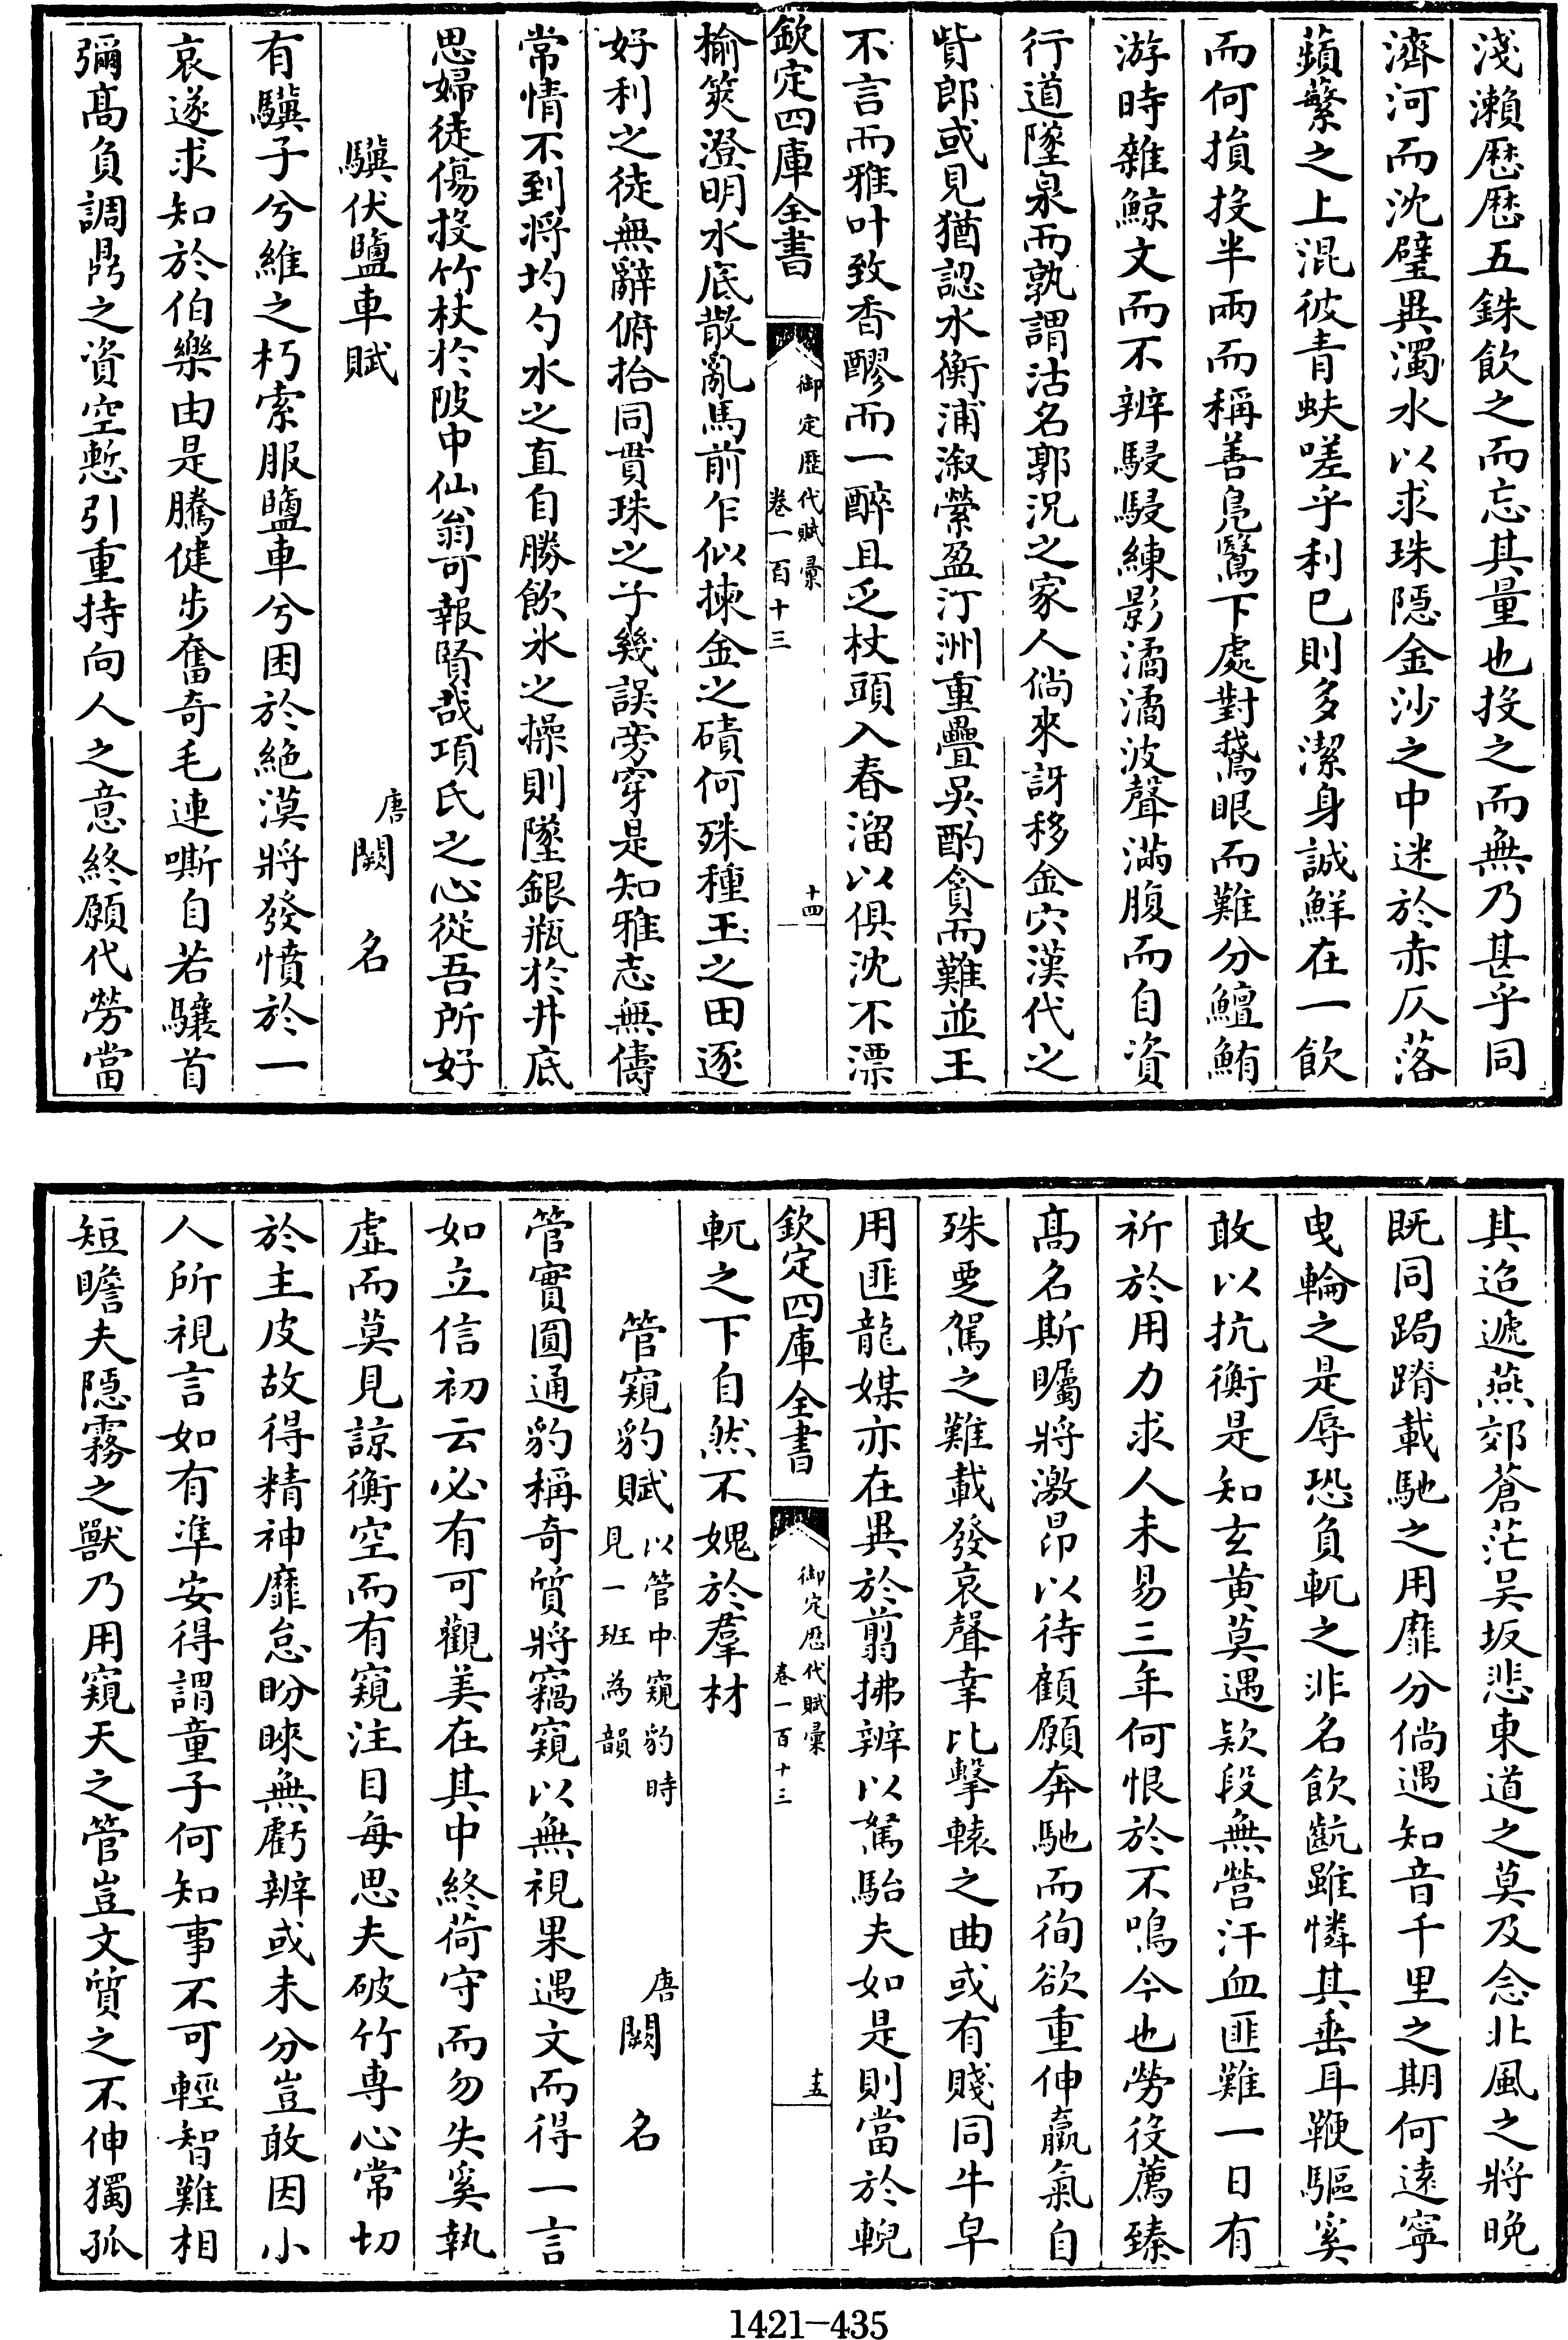 淺瀨歴歴五銖飲之而忘其量也投之而無乃甚乎同
濟河而沈璧異濁水以求珠隱金沙之中迷於赤仄落
蘋蘩之上混彼青蚨嗟乎利已則多潔身誠鮮在一飲
而何損投半兩而稱善鳬鷖下處對鵞眼而難分鱣鮪
游時雜鯨文而不辨駸駸練影潏潏波聲滿腹而自資
行道墜泉而孰謂沽名郭況之家人倘來訝移金穴漢代之
貲郎或見猶認水衡浦溆縈盈汀洲重疊吳酌貪而難並王
不言而雅叶致香醪而一醉且乏杖頭入春溜以俱沈不漂
欽定四庫全書
御定歴代賦彚
卷一百十三
十四
榆筴澄明水底散亂馬前乍似揀金之磧何殊種玉之田逐
好利之徒無辭俯拾同貫珠之子幾誤旁穿是知雅志無儔
常情不到將圴勺水之直自勝飲水之操則墜銀瓶於井底
思婦徒傷投竹杖於陂中仙翁可報賢哉項氏之心從吾所好
驥伏鹽車賦
唐 闕名
有驥子兮維之朽索服鹽車兮困於絶漠將發憤於一
哀遂求知於伯樂由是騰健步奮奇毛連嘶自若驤首
彌高負調鼎之資空慙引重持向人之意終願代勞當
其迢遞燕郊蒼茫吳坂悲東道之莫及念北風之將晩
既同跼蹐載馳之用靡分倘遇知音千里之期何遠寧
曳輪之是辱恐負軏之非名飲齕雖憐其垂耳鞭驅奚
敢以抗衡是知玄黄莫遇欵段無營汗血匪難一日有
祈於用力求人未易三年何恨於不鳴今也勞役薦臻
高名斯矚將激昻以待顧願奔馳而徇欲重伸羸氣自
殊覂駕之難載發哀聲幸比擊轅之曲或有賤同牛皁
用匪龍媒亦在異於翦拂辨以駑駘夫如是則當於輗
欽定四庫全書
御定歴代賦彚
卷一百十三
十五
軏之下自然不媿於羣材
管窺豹賦
以管中窺豹時
見一班為韻
唐 闕名
管實圓通豹稱奇質將竊窺以無視果遇文而得一言
如立信初云必有可觀美在其中終荷守而勿失奚執
虛而莫見諒衡空而有窺注目每思夫破竹專心常切
於主皮故得精神靡怠盼睞無虧辨或未分豈敢因小
人所視言如有準安得謂童子何知事不可輕智難相
短瞻夫隱霧之獸乃用窺天之管豈文質之不伸獨孤
1421-435